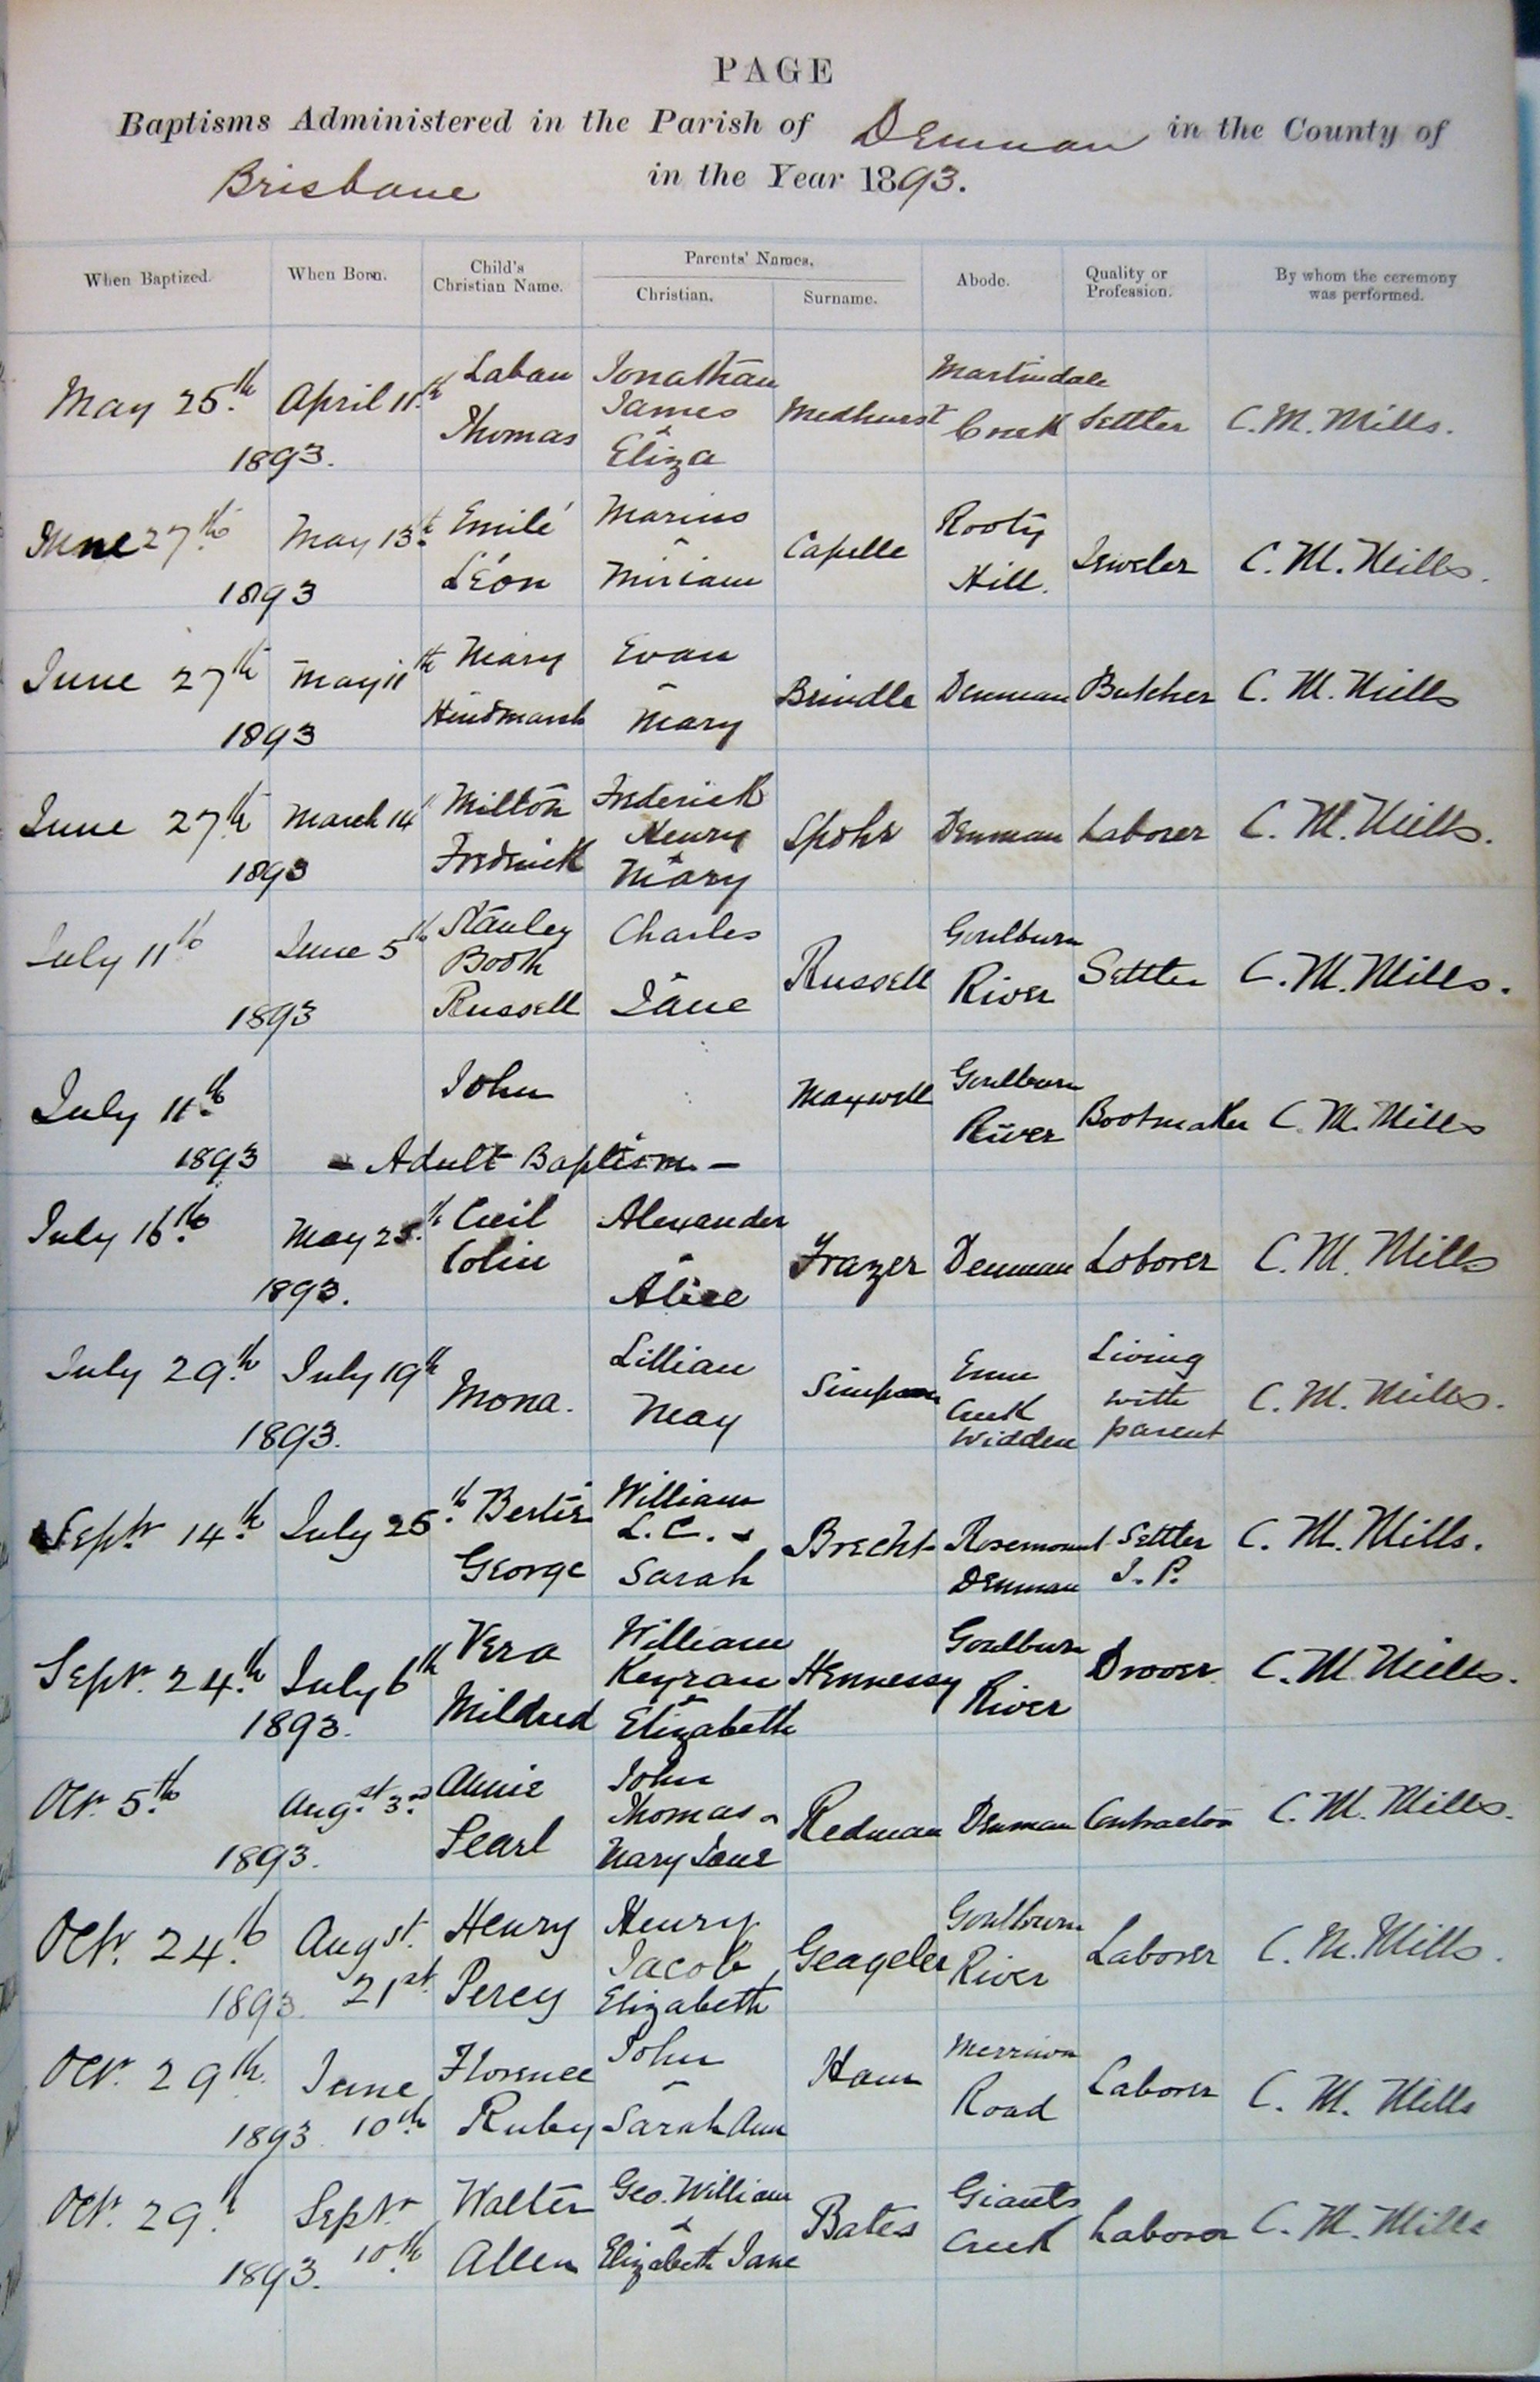 PAGE
Baptisms Administered in the Parish of Denman in the County of
Brisbane in the Year 1893.
When Baptized. When Born. Child's Christian Name. Parents' Names. Christian. Surname. Abode. Quality or Profession. By whom the ceremony was performed.
May 25th 1893. April 11th Laban Thomas Jonathan James & Eliza Medhurst Martindale Creek Settler C. M. Mills.
June 27th 1893 May 13th Emilé Léon Marius & Miriam Capelle Rooty Hill. Jeweler C. M. Mills.
June 27th 1893 May 11th Mary Hindmarsh Evan & Mary Brindle Denman Butcher C. M. Mills
June 27th 1893 March 14th Milton Frederick Frederick Henry & Mary Spohr Denman Laborer C. M. Mills.
July 11th 1893 June 5th Stanley Booth Russell Charles & Jane Russell Goulburn River Settler C. M. Mills.
July 11th 1893 John Maxwell Goulburn River Bootmaker C. M. Mills
- Adult Baptism. -
July 16th 1893. May 25th Cecil Colin Alexander & Alice Frazer Denman Laborer C. M. Mills
July 29th 1893. July 19th Mona. Lillian May Simpson Emu Creek Widden Living with parent C. M. Mills.
Septr 14th July 26th Bertie George William L. C. & Sarah Brecht Rosemount Denman Settler J. P. C. M. Mills.
Septr 24th 1893. July 6th Vera Mildred William Keyran & Elizabeth Hennessy Goulburn River Drover. C. M. Mills.
Octr 5th 1893. Augst 3rd Annie Pearl John Thomas & Mary Jane Redman Denman Contractor C. M. Mills.
Octr 24th 1893. Augst 21st Henry Percy Henry Jacob, Elizabeth Geageler Goulburn River Laborer C. M. Mills.
Octr 29th 1893 June 10th Florence Ruby John & Sarah Ann Ham Merriwa Road Laborer C. M. Mills
Octr 29th 1893. Septr 10th Walter Allen Geo. William & Elizabeth Jane Bates Giants Creek Laborer C. M. Mills